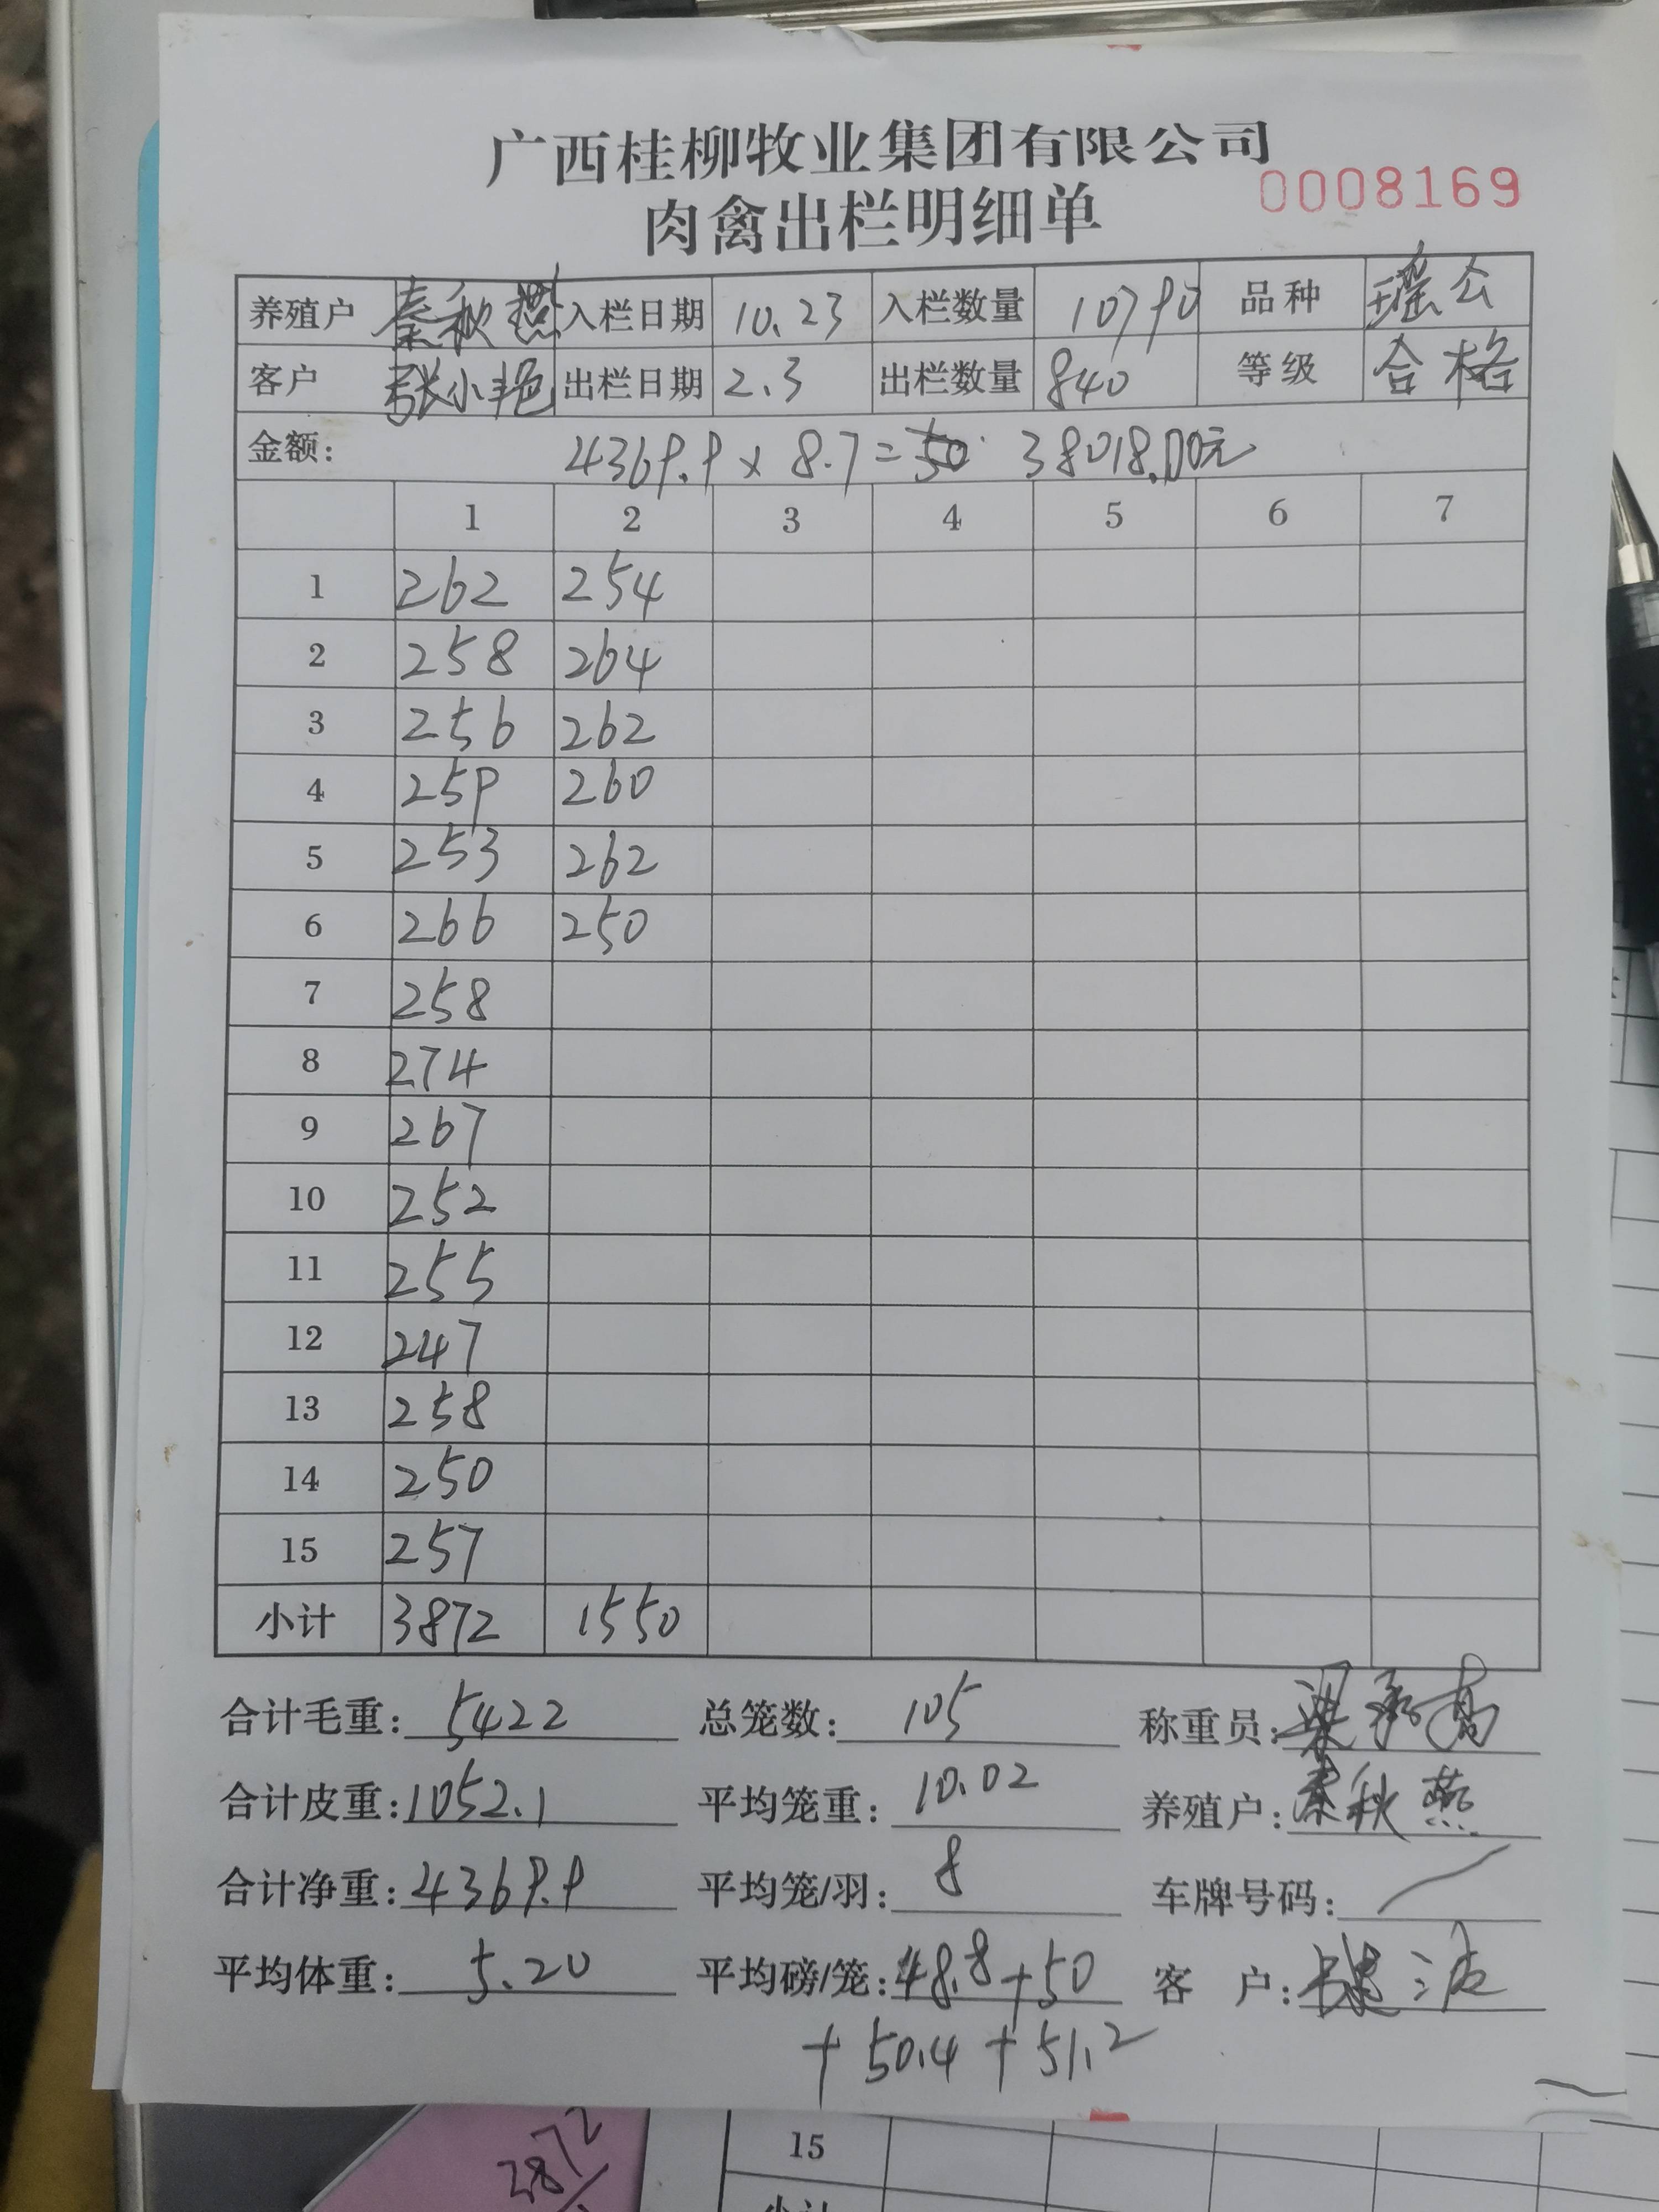 广西桂柳牧业集团有限公司
0008169
肉禽出栏明细单
养殖户 秦秋燕 入栏日期 10.23 入栏数量 10790 品种 瑶公
客户 张小艳 出栏日期 2.3 出栏数量 840 等级 合格
金额: 4369.9 x 8.7 = 38018.00元
1 2 3 4 5 6 7
1 262 254
2 258 264
3 256 262
4 259 260
5 253 262
6 266 250
7 258
8 274
9 267
10 252
11 255
12 247
13 258
14 250
15 257
小计 3872 1550
合计毛重: 5422 总笼数: 105 称重员:
合计皮重: 1052.1 平均笼重: 10.02 养殖户: 秦秋燕
合计净重: 4369.9 平均笼/羽: 8 车牌号码:
平均体重: 5.20 平均磅/笼: 48.8+50 客 户:
+ 50.4 + 51.2
3872
15
小计